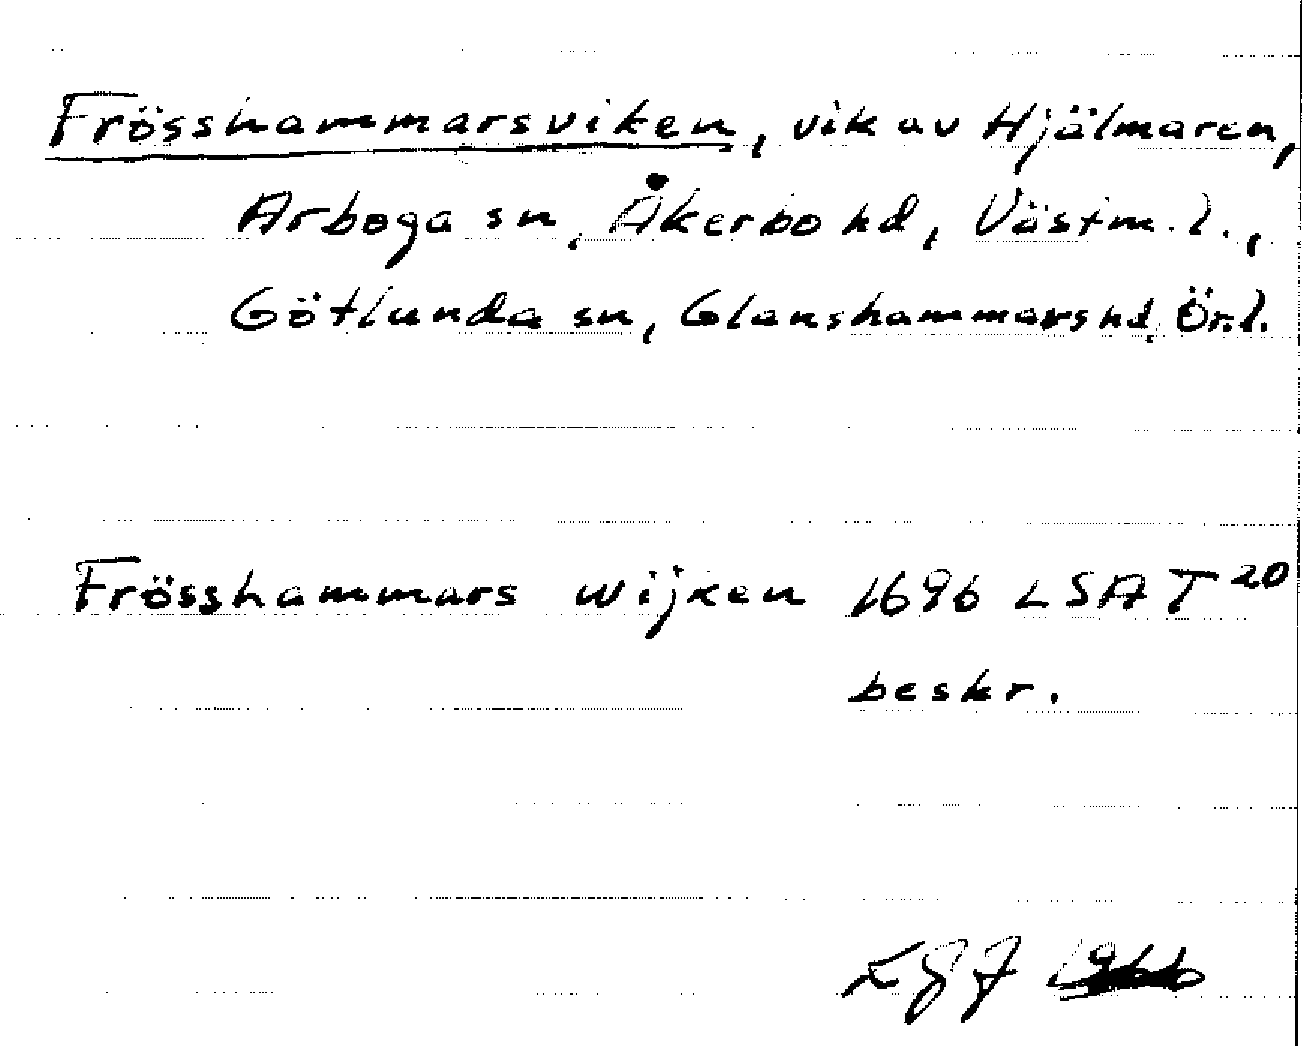 Frösshammarsviken, vik av Hjälmaren,
Arboga sn, Åkerbo hd, Västm. l.,
Götlunda sn, Glanshammars hd, Ör. l.
Frösshammars wijken 1696 LSA T 20
beskr.